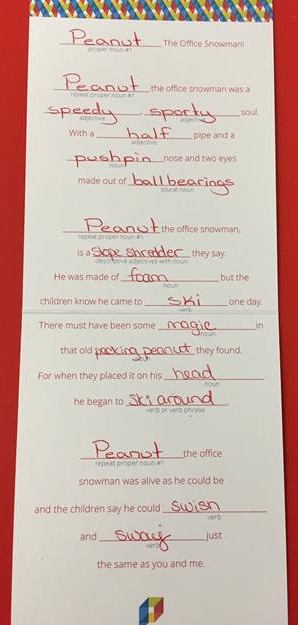 Peanut The Office Snowman!
proper noun #1
Peanut the office snowman was a
repeat proper noun #1
speedy, sporty soul.
adjective adjective
With a half pipe and a
adjective
pushpin nose and two eyes
noun
made out of ball bearings
plural noun
Peanut the office snowman,
repeat proper noun #1
is a slope shredder they say.
descriptive adjectives with noun
He was made of foam but the
noun
children know he came to ski one day.
verb
There must have been some magic in
noun
that old packing peanut they found.
noun
For when they placed it on his head
noun
he began to ski around
verb or verb phrase
Peanut the office
repeat proper noun #1
snowman was alive as he could be
and the children say he could swish
verb
and sway just
verb
the same as you and me.